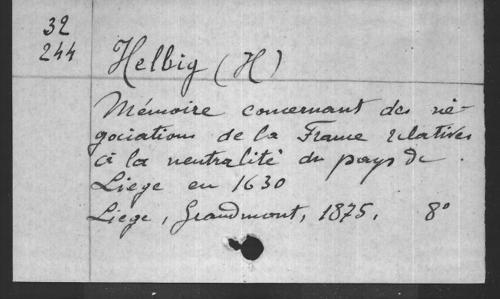 32
244
Helbig (H)
Mémoire concernant des né-
gociations de la France relatives
à la neutralité du pays de
Liege en 1630
Liege, Grandmont, 1875, 8°